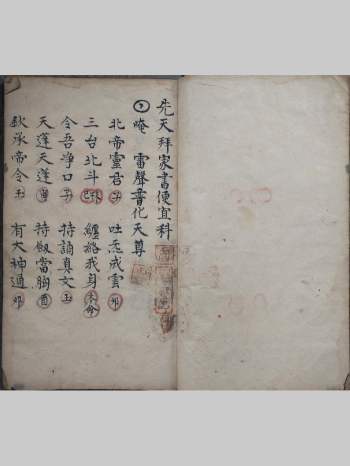 先天拜家書便宜科
唵 雷聲普化天尊
北帝靈君子 吐炁成雲卯
三台北斗 纏絡我身本命
令吾淨口子 持誦真文玉
天蓬天蓬 持劍當胸酉
欽承帝令玉 有大神通卯